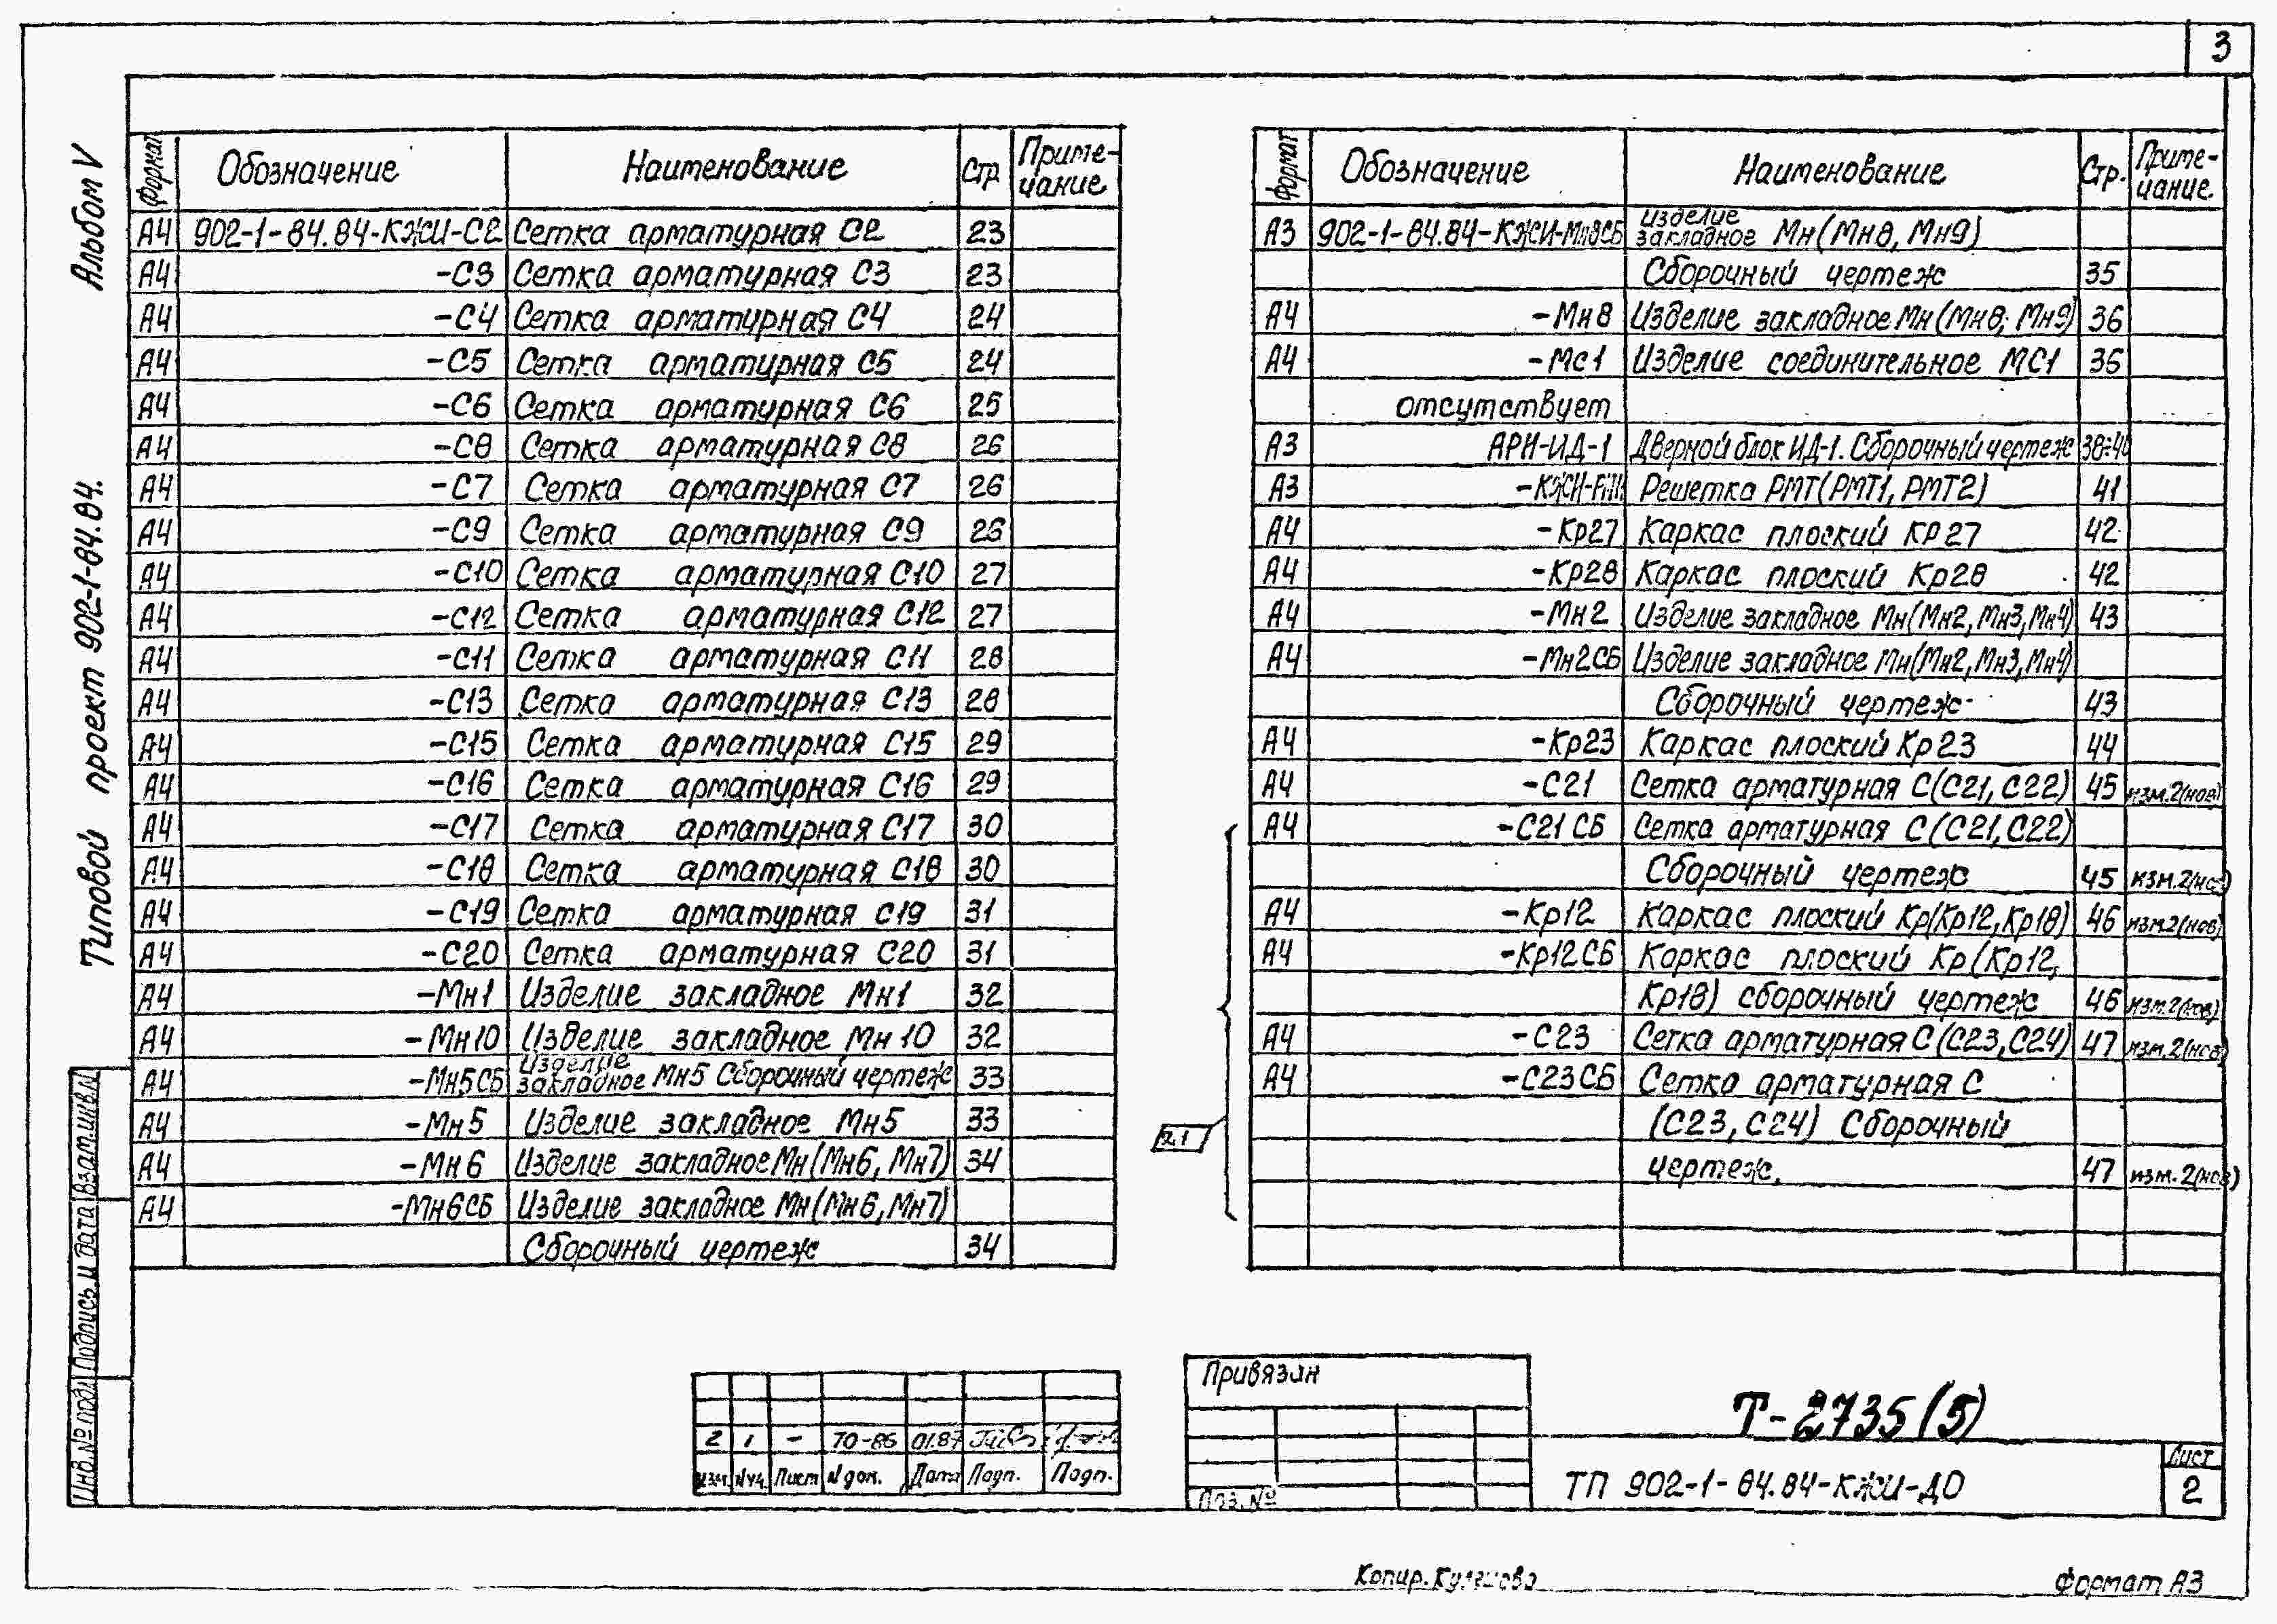 3
Альбом V
Типовой проект 902-1-84.84.
Формат Обозначение Наименование Стр Приме-чание
А4 902-1-84.84-КЖИ-С2 Сетка арматурная С2 23
А4 -С3 Сетка арматурная С3 23
А4 -С4 Сетка арматурная С4 24
А4 -С5 Сетка арматурная С5 24
А4 -С6 Сетка арматурная С6 25
А4 -С8 Сетка арматурная С8 26
А4 -С7 Сетка арматурная С7 26
А4 -С9 Сетка арматурная С9 26
А4 -С10 Сетка арматурная С10 27
А4 -С12 Сетка арматурная С12 27
А4 -С11 Сетка арматурная С11 28
А4 -С13 Сетка арматурная С13 28
А4 -С15 Сетка арматурная С15 29
А4 -С16 Сетка арматурная С16 29
А4 -С17 Сетка арматурная С17 30
А4 -С18 Сетка арматурная С18 30
А4 -С19 Сетка арматурная С19 31
А4 -С20 Сетка арматурная С20 31
А4 -Мн1 Изделие закладное Мн1 32
А4 -Мн10 Изделие закладное Мн10 32
А4 -Мн5СБ Изделие закладное Мн5 Сборочный чертеж 33
А4 -Мн5 Изделие закладное Мн5 33
А4 -Мн6 Изделие закладное Мн(Мн6, Мн7) 34
А4 -Мн6СБ Изделие закладное Мн(Мн6, Мн7)
Сборочный чертеж 34
Формат Обозначение Наименование Стр. Приме-чание
А3 902-1-84.84-КЖИ-Мн8СБ Изделие закладное Мн(Мн8, Мн9)
Сборочный чертеж 35
А4 -Мн8 Изделие закладное Мн(Мн8; Мн9) 36
А4 -Мс1 Изделие соединительное МС1 36
отсутствует
А3 АРИ-ИД-1 Дверной блок ИД-1. Сборочный чертеж
А3 Решетка РМТ(РМТ1, РМТ2) 41
А4 -Кр27 Каркас плоский КР27 42
А4 -Кр28 Каркас плоский Кр28 42
А4 -Мн2 Изделие закладное Мн(Мн2, Мн3, Мн4) 43
А4 -Мн2СБ Изделие закладное Мн(Мн2, Мн3, Мн4)
Сборочный чертеж 43
А4 -Кр23 Каркас плоский Кр23 44
А4 -С21 Сетка арматурная С(С21, С22) 45 изм.2(нов)
А4 -С21СБ Сетка арматурная С(С21, С22)
Сборочный чертеж 45 изм.2(нов)
А4 -Кр12 Каркас плоский Кр(Кр12, Кр18) 46 изм.2(нов)
А4 -Кр12СБ Каркас плоский Кр(Кр12,
Кр18) сборочный чертеж 46 изм.2(нов)
А4 -С23 Сетка арматурная С(С23, С24) 47 изм.2(нов)
А4 -С23СБ Сетка арматурная С
(С23, С24) Сборочный
чертеж. 47 изм.2(нов)
2.1
Инв.№ подл Подпись и дата Взам.инв.N
2 1 - ТО-86 01.87
Изм. Nуч. Лист N док. Дата Подп. Подп.
Привязан
Инв.№
Т-2735(5)
ТП 902-1-84.84-КЖИ-ДО
Лист
2
Копир.
Формат А3